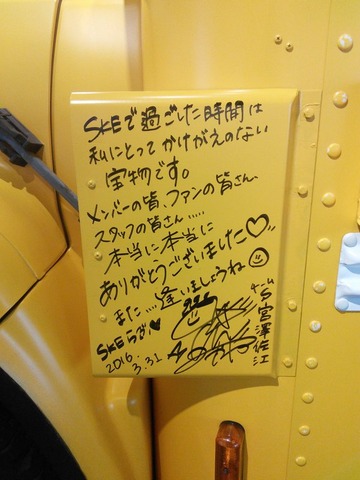 SKEで過ごした時間は
私にとってかけがえのない
宝物です。
メンバーの皆、ファンの皆さん、
スタッフの皆さん.....
本当に本当に
ありがとうございました♡
また....逢いましょうね☺
SKEらぶ♥
2016.
3.31
宮澤佐江